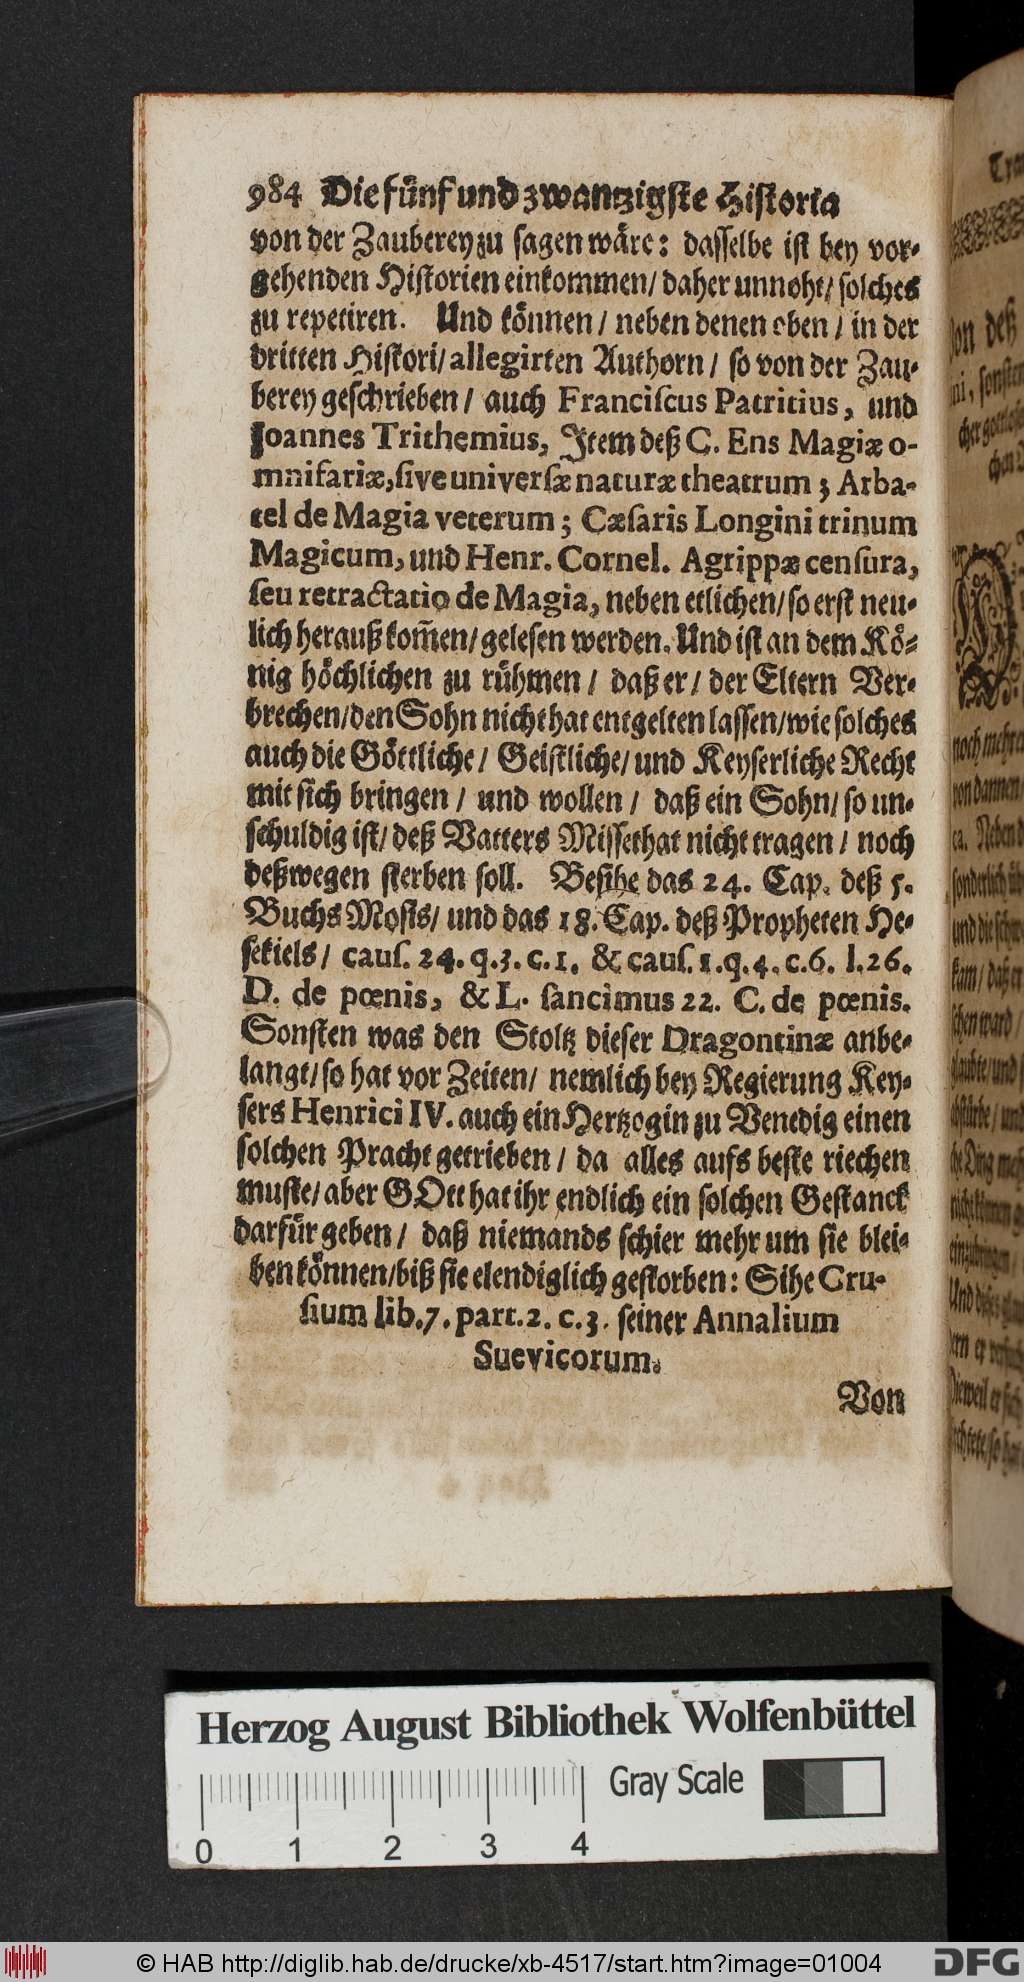 984 Die fünf und zwantzigste Historia
von der Zauberey zu sagen wäre: dasselbe ist bey vor-
gehenden Historien einkommen/ daher unnoht/ solches
zu repetiren. Und können/ neben denen oben/ in der
dritten Histori/ allegirten Authorn/ so von der Zau-
berey geschrieben/ auch Franciſcus Patritius, und
Joannes Trithemius, Item deß C. Ens Magiæ o-
mnifariæ, ſive univerſæ naturæ theatrum; Arba-
tel de Magia veterum; Cæſaris Longini trinum
Magicum, und Henr. Cornel. Agrippæ cenſura,
ſeu retractatio de Magia, neben etlichen/ so erst neu-
lich herauß kom̃en/ gelesen werden. Und ist an dem Kö-
nig höchlichen zu rühmen/ daß er/ der Eltern Ver-
brechen/ den Sohn nicht hat entgelten lassen/ wie solches
auch die Göttliche/ Geistliche/ und Keyserliche Recht
mit sich bringen/ und wollen/ daß ein Sohn/ so un-
schuldig ist/ deß Vatters Missethat nicht tragen/ noch
deßwegen sterben soll. Besihe das 24. Cap. deß 5.
Buchs Mosis/ und das 18. Cap. deß Propheten He-
sekiels/ cauſ. 24. q.3. c.1. & cauſ. 1. q.4. c.6. l.26.
D. de pœnis, & L. ſancimus 22. C. de pœnis.
Sonsten was den Stoltz dieser Dragontinæ anbe-
langt/ so hat vor Zeiten/ nemlich bey Regierung Key-
sers Henrici IV. auch ein Hertzogin zu Venedig einen
solchen Pracht getrieben/ da alles aufs beste riechen
muste/ aber GOtt hat ihr endlich ein solchen Gestanck
darfür geben/ daß niemands schier mehr um sie blei-
ben können/ biß sie elendiglich gestorben: Sihe Cru-
ſium lib.7. part.2. c.3. seiner Annalium
Suevicorum.
Von
Herzog August Bibliothek Wolfenbüttel
Gray Scale
0 1 2 3 4
© HAB http://diglib.hab.de/drucke/xb-4517/start.htm?image=01004
DFG